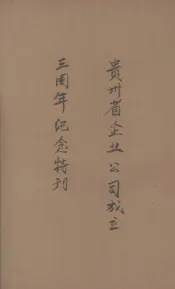 贵州省企业公司成立
三周年纪念特刊